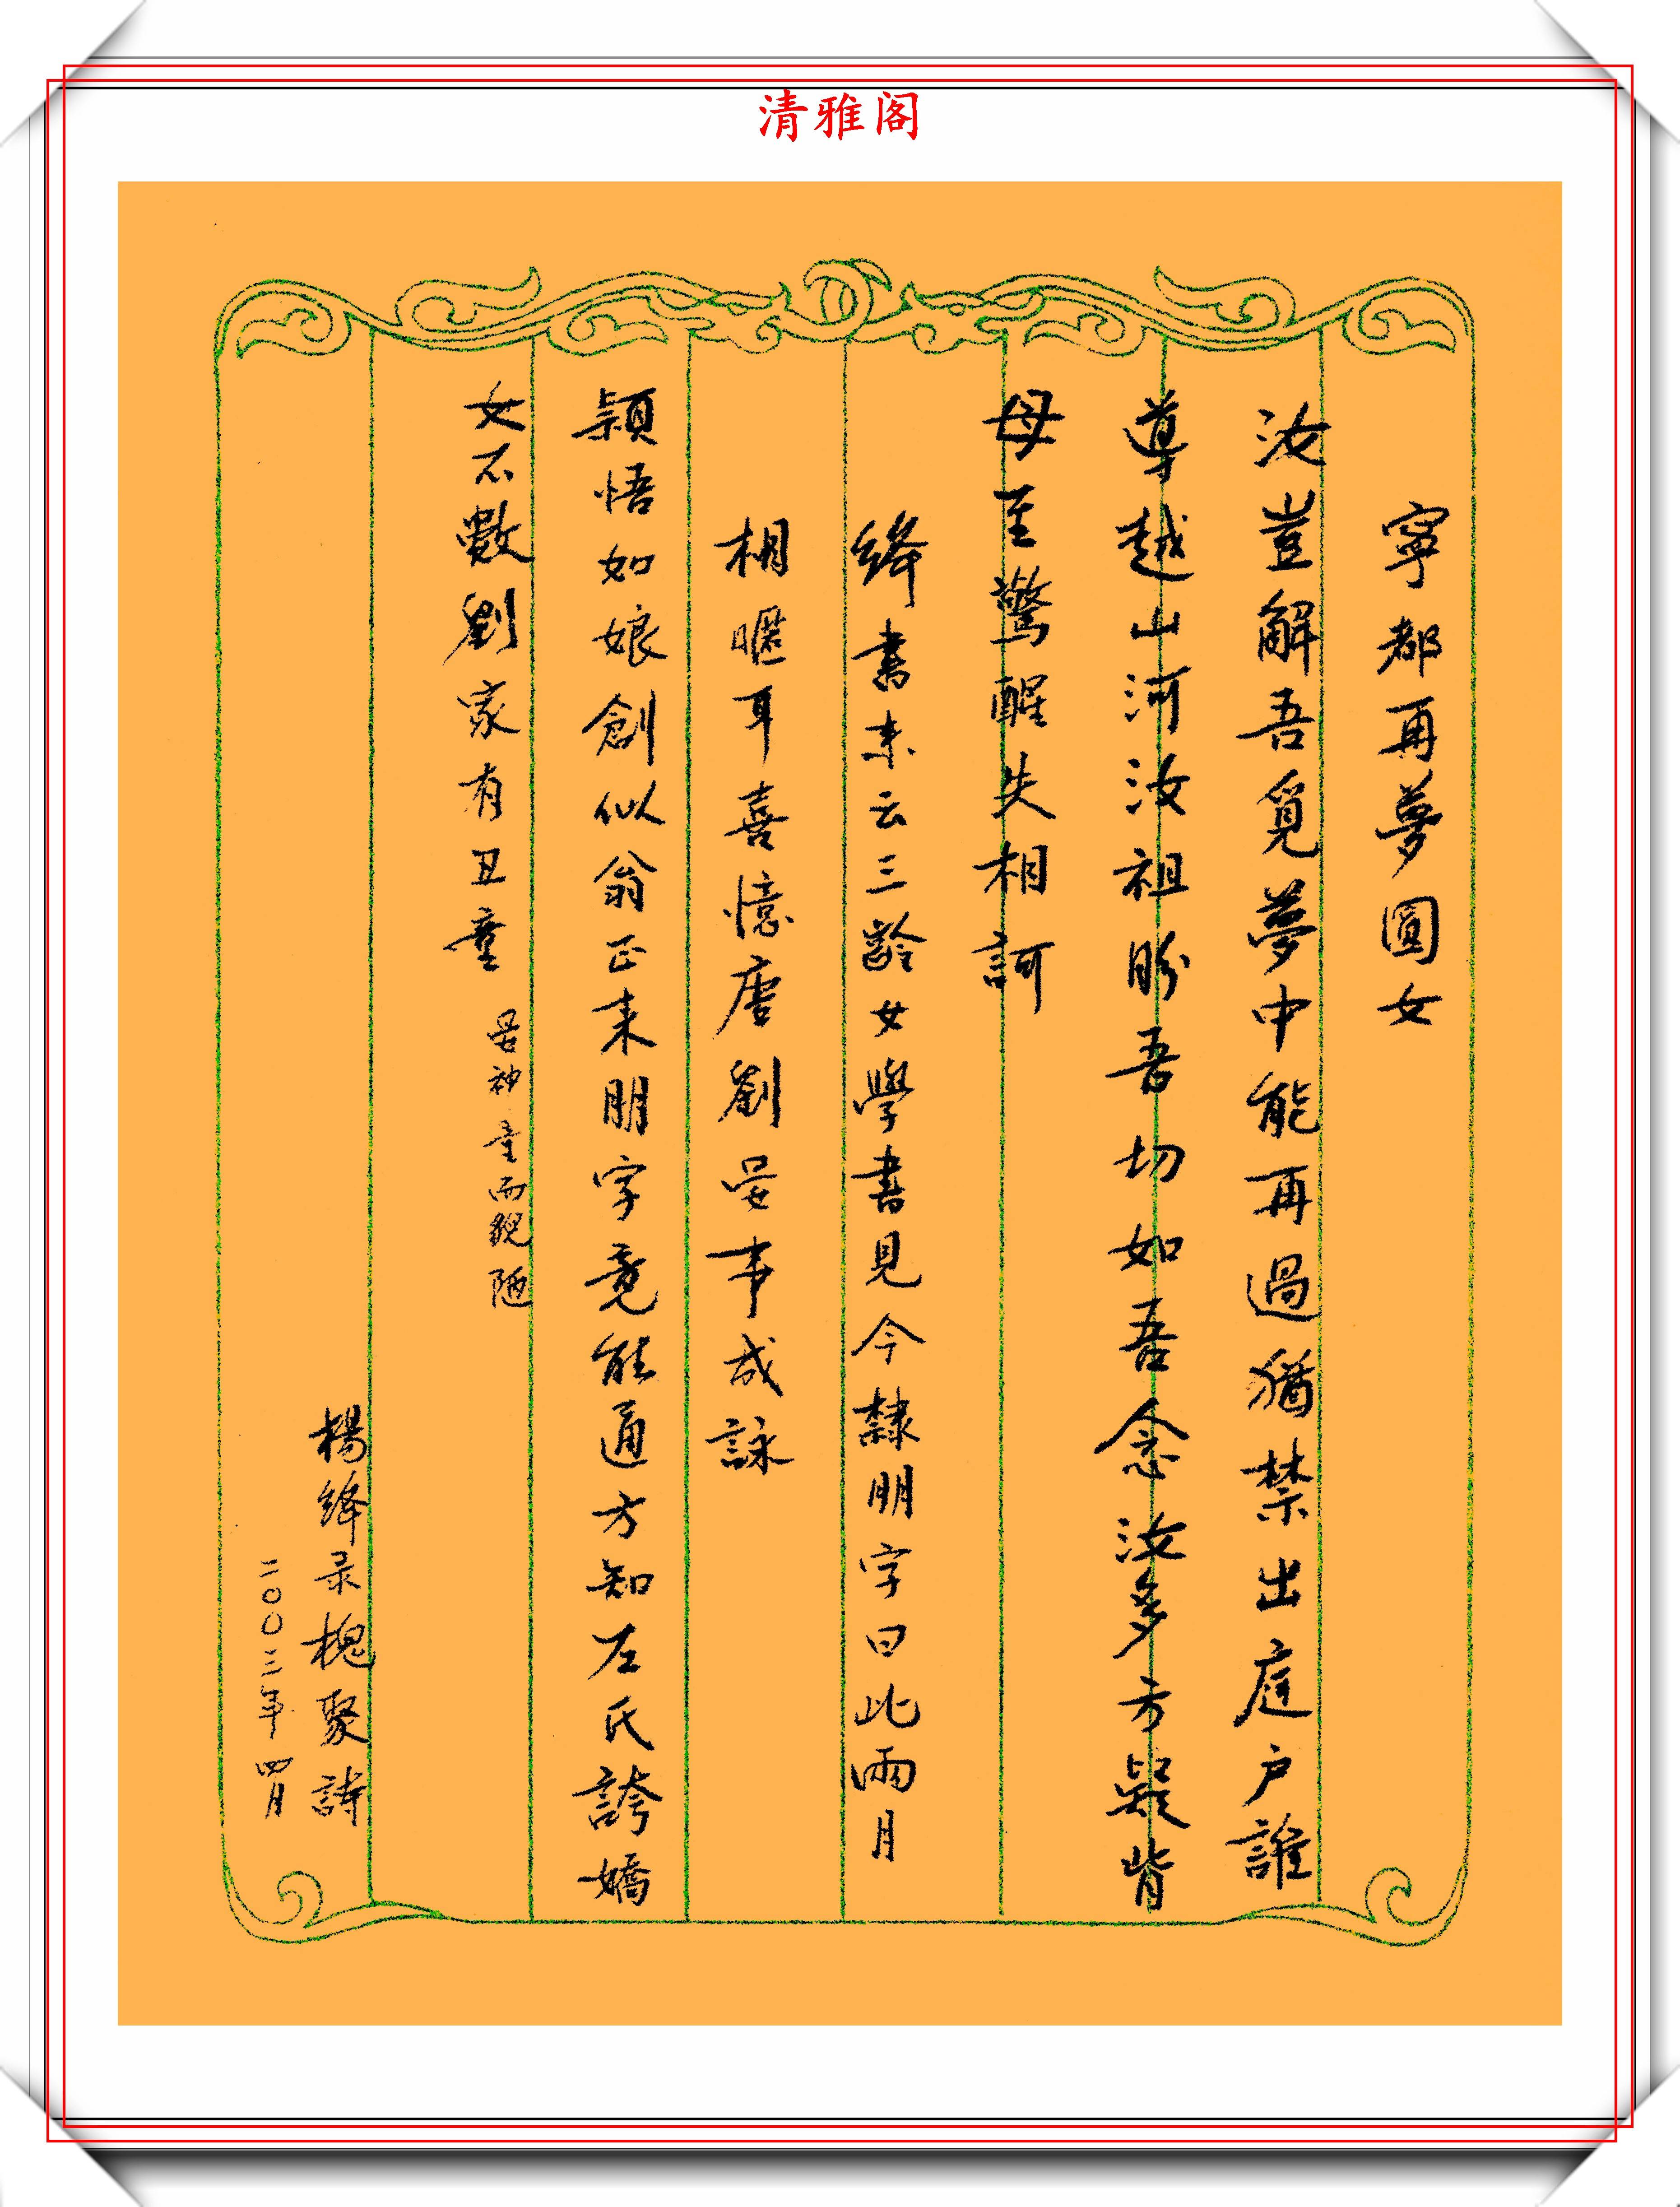 清雅阁
寧都再夢圓女
汝豈解吾覓夢中能再過猶禁出庭户誰
導越山河汝祖盼吾切如吾念汝多方疑背
母至驚醒失相訶
絳書來云三齡女學書見今隸朋字曰此兩月
相暱耳喜憶唐劉晏事成詠
穎悟如娘創似翁正来朋字竟能通方知左氏誇嬌
女不數劉家有丑童
晏神童而貌陋
楊绛录槐聚詩
二〇〇三年四月